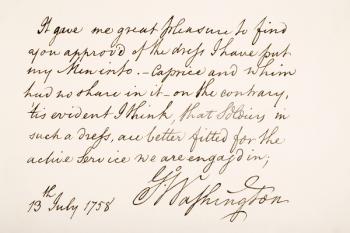 It gave me great Pleasure to find
you approv'd of the dress I have put
my Men into. – Caprice and whim
had no share in it – on the contrary,
'tis evident I think, that Soldiers in
such a dress, are better fitted for the
active Service we are engag'd in;
G:o Washington
13th July 1758